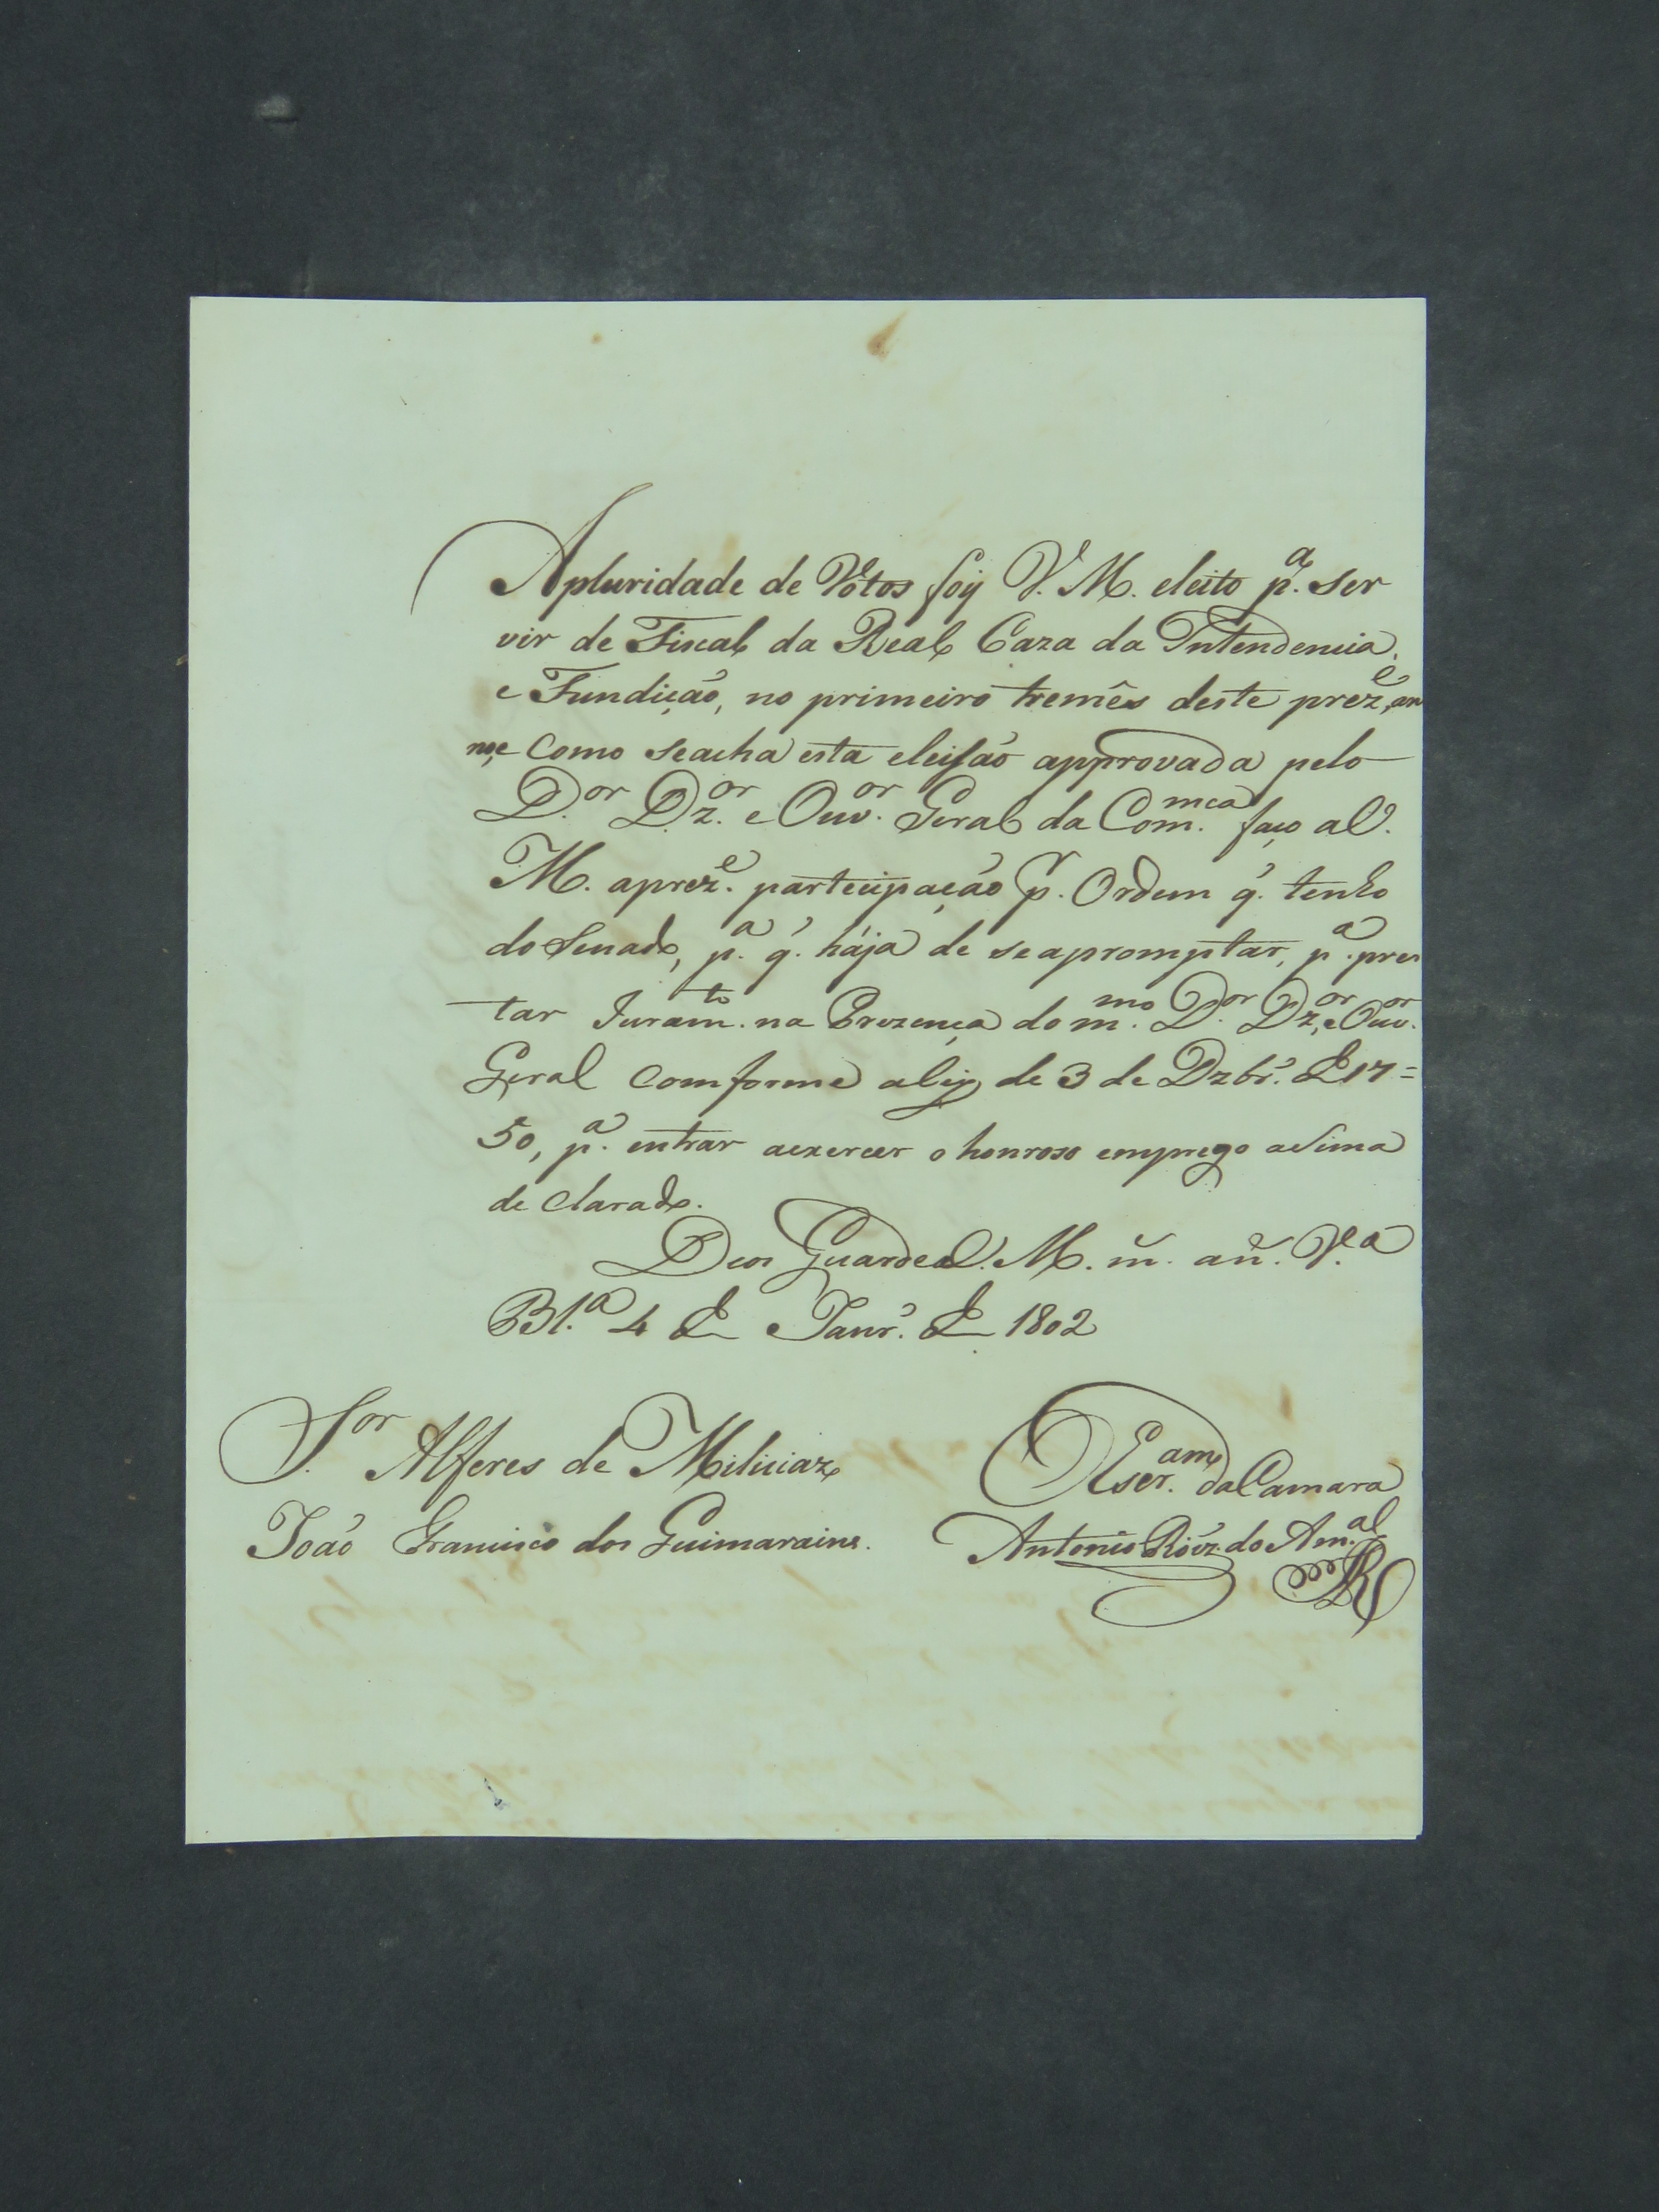 Apluridade de Vótos foÿ V. M. eleito p.ª ser
vir de Fiscal da Real Caza da Intendencia,
e Fundição, no primeiro tremês deste prez.e, an
no, e como seacha esta eleisão approvada pelo
D.or Dz.or e Ouv.or Geral da Com.mca faço aV.
M. aprez.e partecipação p.r Ordem q.' tenho
do Senado, p.ª q.' hája de seapromptar, p.ª pres
tar Juram.to na Prezença do m.mo D.or Dz.or, e Ouv.or
Geral comforme aley de 3 de Dzbr.' de 17=
50, p.ª entrar aexercer o honroso emprego asima
de clarado.
Deos Guarde aV. M. m. an. V.ª
Bl.ª 4 de Janr.' de 1802
S.or Alferes de Miliciaz
João Francisco dos Guimarains.
OEscr.am da Camara
Antonio Róiz do Am.al